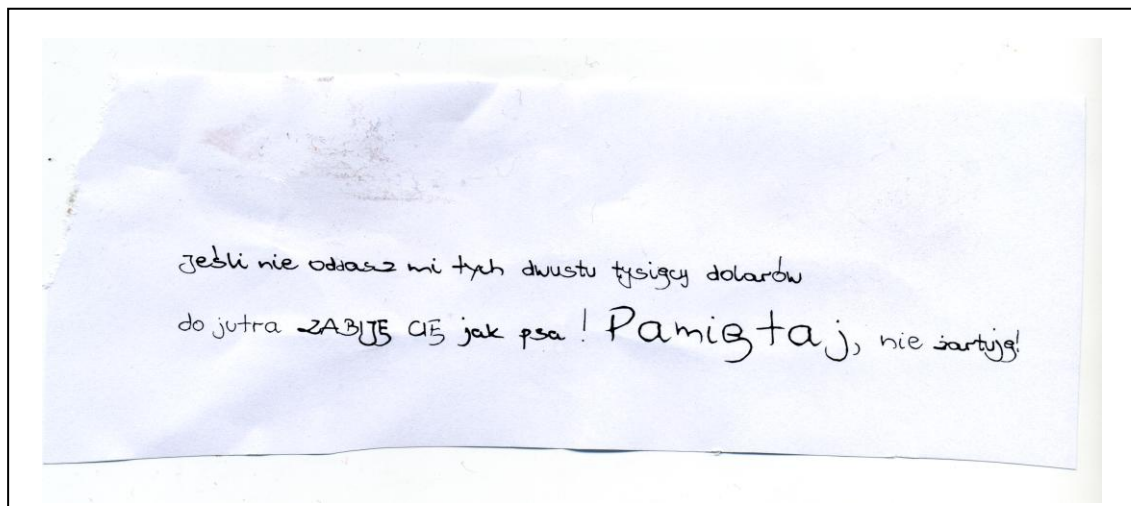 Jeśli nie oddasz mi tych dwustu tysięcy dolarów
do jutra ZABIJĘ CIĘ jak psa! Pamiętaj, nie żartuję!